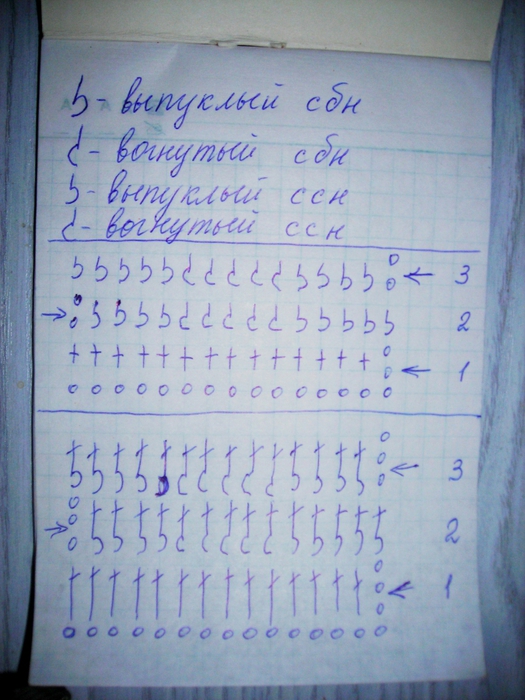 - выпуклый сбн
- вогнутый сбн
- выпуклый ссн
- вогнутый ссн
3
2
1
3
2
1